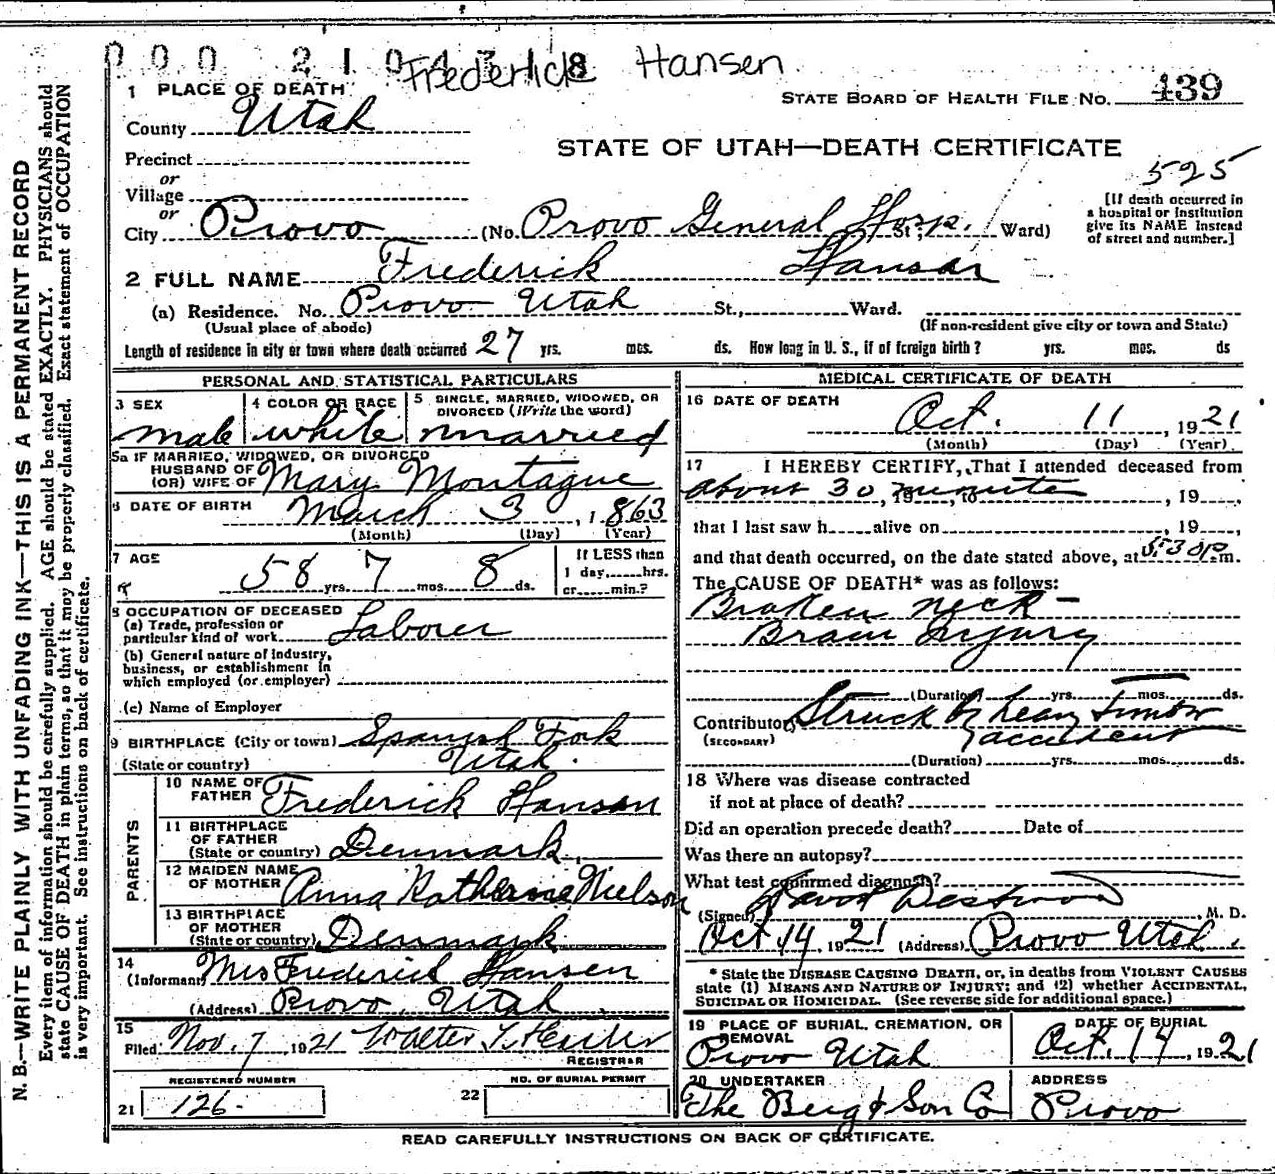 000 210 4318
Frederick Hansen
1 PLACE OF DEATH
STATE BOARD OF HEALTH FILE NO. 439
County Utah
STATE OF UTAH—DEATH CERTIFICATE
Precinct
525
or
Village
or
City Provo (No. Provo General Hosp. St.; Ward)
[If death occurred in
a hospital or institution
give its NAME instead
of street and number.]
2 FULL NAME Frederick Hansen
(a) Residence. No. Provo Utah St., Ward.
(Usual place of abode) (If non-resident give city or town and State)
Length of residence in city or town where death occurred 27 yrs. mos. ds. How long in U. S., if of foreign birth? yrs. mos. ds
PERSONAL AND STATISTICAL PARTICULARS
3 SEX 4 COLOR OR RACE 5 SINGLE, MARRIED, WIDOWED, OR
DIVORCED (Write the word)
male white married
5a IF MARRIED, WIDOWED, OR DIVORCED
HUSBAND OF
(OR) WIFE OF Mary Montague
6 DATE OF BIRTH March 3, 1863
(Month) (Day) (Year)
7 AGE 58 yrs. 7 mos. 8 ds.
If LESS than
1 day,......hrs.
or......min.?
8 OCCUPATION OF DECEASED
(a) Trade, profession or
particular kind of work Laborer
(b) General nature of industry,
business, or establishment in
which employed (or employer)
(c) Name of Employer
9 BIRTHPLACE (City or town) Spanish Fork
(State or country) Utah.
PARENTS
10 NAME OF
FATHER Frederick Hansen
11 BIRTHPLACE
OF FATHER
(State or country) Denmark
12 MAIDEN NAME
OF MOTHER Anna Katherine Nielson
13 BIRTHPLACE
OF MOTHER
(State or country) Denmark
14
(Informant) Mrs Frederick Hansen
(Address) Provo, Utah
15
Filed Nov. 7 1921 Walter T.
REGISTRAR
REGISTERED NUMBER
21 126-
NO. OF BURIAL PERMIT
22
MEDICAL CERTIFICATE OF DEATH
16 DATE OF DEATH
Oct. 11, 1921
(Month) (Day) (Year)
17 I HEREBY CERTIFY, That I attended deceased from
about 30 minutes, 19
that I last saw h alive on , 19
and that death occurred, on the date stated above, at 5:30 p m.
The CAUSE OF DEATH* was as follows:
Broken neck -
Brain Injury
(Duration) yrs. mos. ds.
Contributory Struck by heavy timber
(SECONDARY) accident
(Duration) yrs. mos. ds.
18 Where was disease contracted
if not at place of death?
Did an operation precede death? Date of
Was there an autopsy?
What test confirmed diagnosis?
(Signed) David Westwood, M. D.
Oct 14, 1921 (Address) Provo Utah.
* State the DISEASE CAUSING DEATH, or, in deaths from VIOLENT CAUSES
state (1) MEANS AND NATURE OF INJURY; and (2) whether ACCIDENTAL,
SUICIDAL OR HOMICIDAL. (See reverse side for additional space.)
19 PLACE OF BURIAL, CREMATION, OR
REMOVAL
Provo Utah
DATE OF BURIAL
Oct. 14, 1921
20 UNDERTAKER
The Berg & Son Co
ADDRESS
Provo
READ CAREFULLY INSTRUCTIONS ON BACK OF CERTIFICATE.
N. B.—WRITE PLAINLY WITH UNFADING INK—THIS IS A PERMANENT RECORD
Every item of information should be carefully supplied. AGE should be stated EXACTLY. PHYSICIANS should
state CAUSE OF DEATH in plain terms, so that it may be properly classified. Exact statement of OCCUPATION
is very important. See instructions on back of certificate.